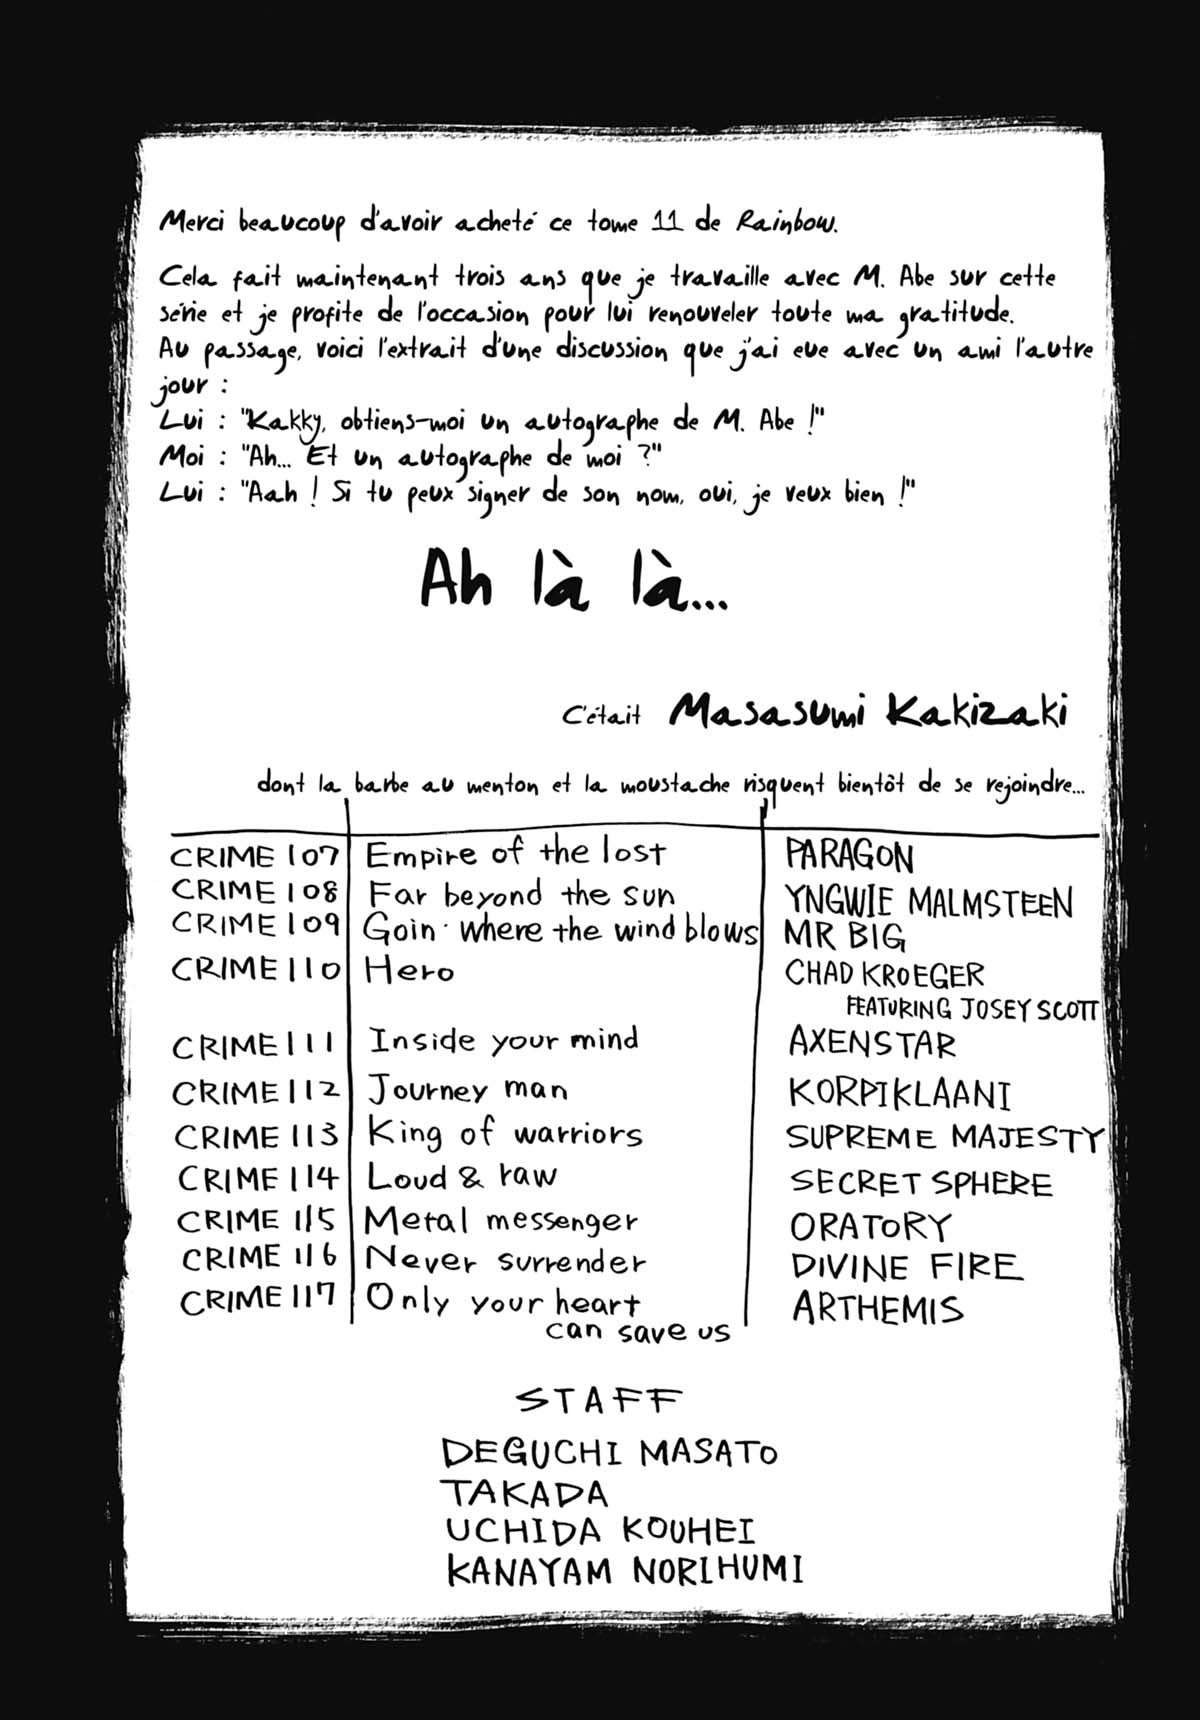 Merci beaucoup d'avoir acheté ce tome 11 de Rainbow.
Cela fait maintenant trois ans que je travaille avec M. Abe sur cette
série et je profite de l'occasion pour lui renouveler toute ma gratitude.
Au passage, voici l'extrait d'une discussion que j'ai eue avec un ami l'autre
jour :
Lui : "Kakky, obtiens-moi un autographe de M. Abe !"
Moi : "Ah... Et un autographe de moi ?"
Lui : "Aah ! Si tu peux signer de son nom, oui, je veux bien !"
Ah là là...
C'était Masasumi Kakizaki
dont la barbe au menton et la moustache risquent bientôt de se rejoindre...
CRIME 107 Empire of the lost PARAGON
CRIME 108 Far beyond the sun YNGWIE MALMSTEEN
CRIME 109 Goin' where the wind blows MR BIG
CRIME 110 Hero CHAD KROEGER
FEATURING JOSEY SCOTT
CRIME 111 Inside your mind AXENSTAR
CRIME 112 Journey man KORPIKLAANI
CRIME 113 King of warriors SUPREME MAJESTY
CRIME 114 Loud & raw SECRET SPHERE
CRIME 115 Metal messenger ORATORY
CRIME 116 Never surrender DIVINE FIRE
CRIME 117 Only your heart ARTHEMIS
can save us
STAFF
DEGUCHI MASATO
TAKADA
UCHIDA KOUHEI
KANAYAM NORIHUMI